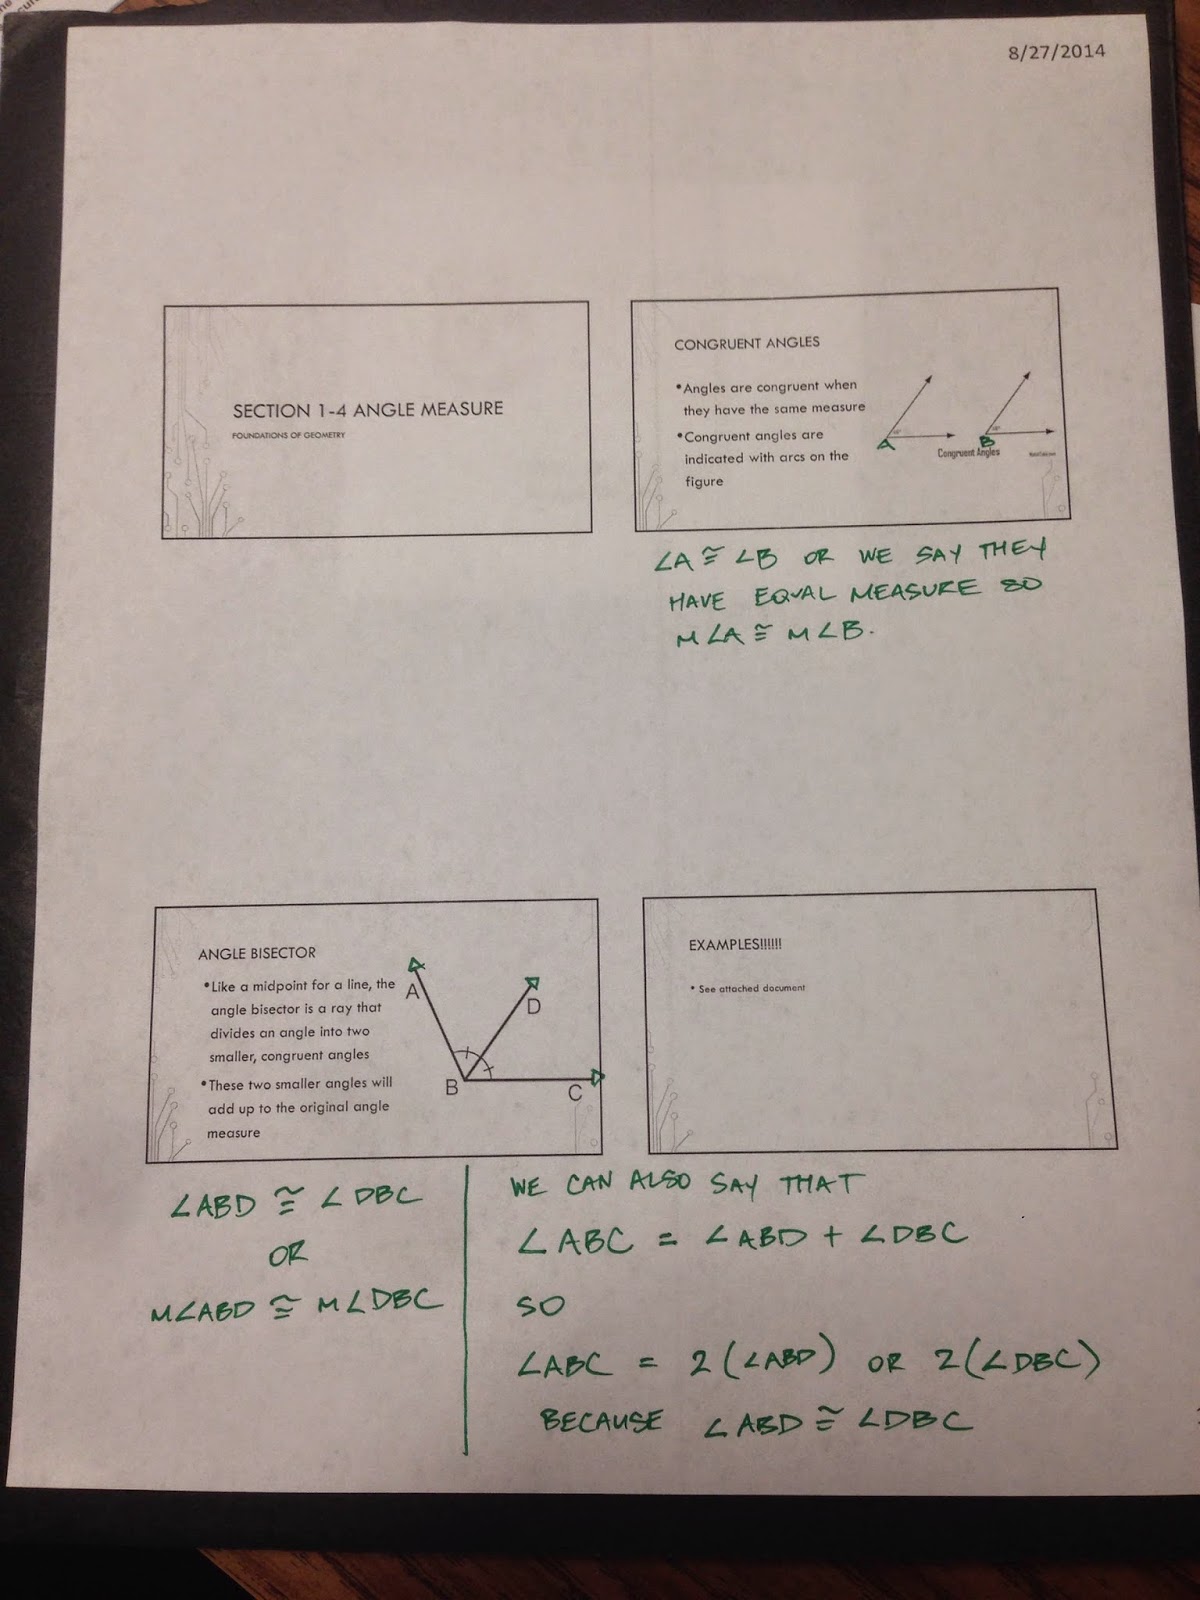 8/27/2014
SECTION 1-4 ANGLE MEASURE
FOUNDATIONS OF GEOMETRY
CONGRUENT ANGLES
•Angles are congruent when
they have the same measure
•Congruent angles are
indicated with arcs on the
figure
A
B
Congruent Angles
∠A ≅ ∠B OR WE SAY THEY
HAVE EQUAL MEASURE SO
M∠A ≅ M∠B.
ANGLE BISECTOR
•Like a midpoint for a line, the
angle bisector is a ray that
divides an angle into two
smaller, congruent angles
•These two smaller angles will
add up to the original angle
measure
A
D
B
C
EXAMPLES!!!!!!
• See attached document
∠ABD ≅ ∠DBC
OR
M∠ABD ≅ M∠DBC
WE CAN ALSO SAY THAT
∠ABC = ∠ABD + ∠DBC
SO
∠ABC = 2(∠ABD) OR 2(∠DBC)
BECAUSE ∠ABD ≅ ∠DBC